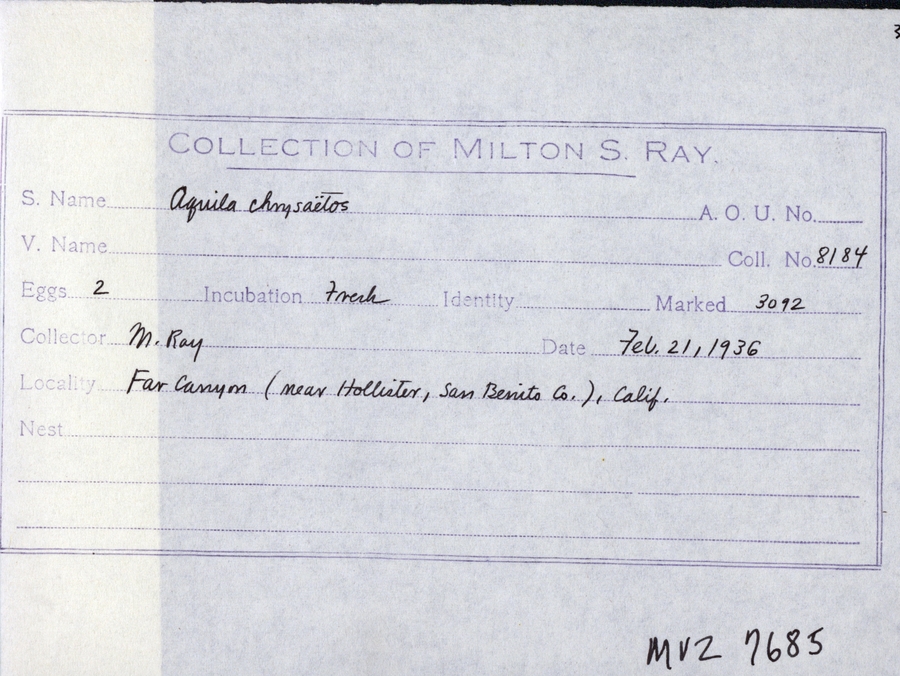 COLLECTION OF MILTON S. RAY.
S. Name Aquila chrysaëtos A. O. U. No.
V. Name Coll. No. 8184
Eggs 2 Incubation Fresh Identity Marked 3092
Collector M. Ray Date Feb. 21, 1936
Locality Far Canyon (near Hollister, San Benito Co.), Calif.
Nest
MVZ 7685